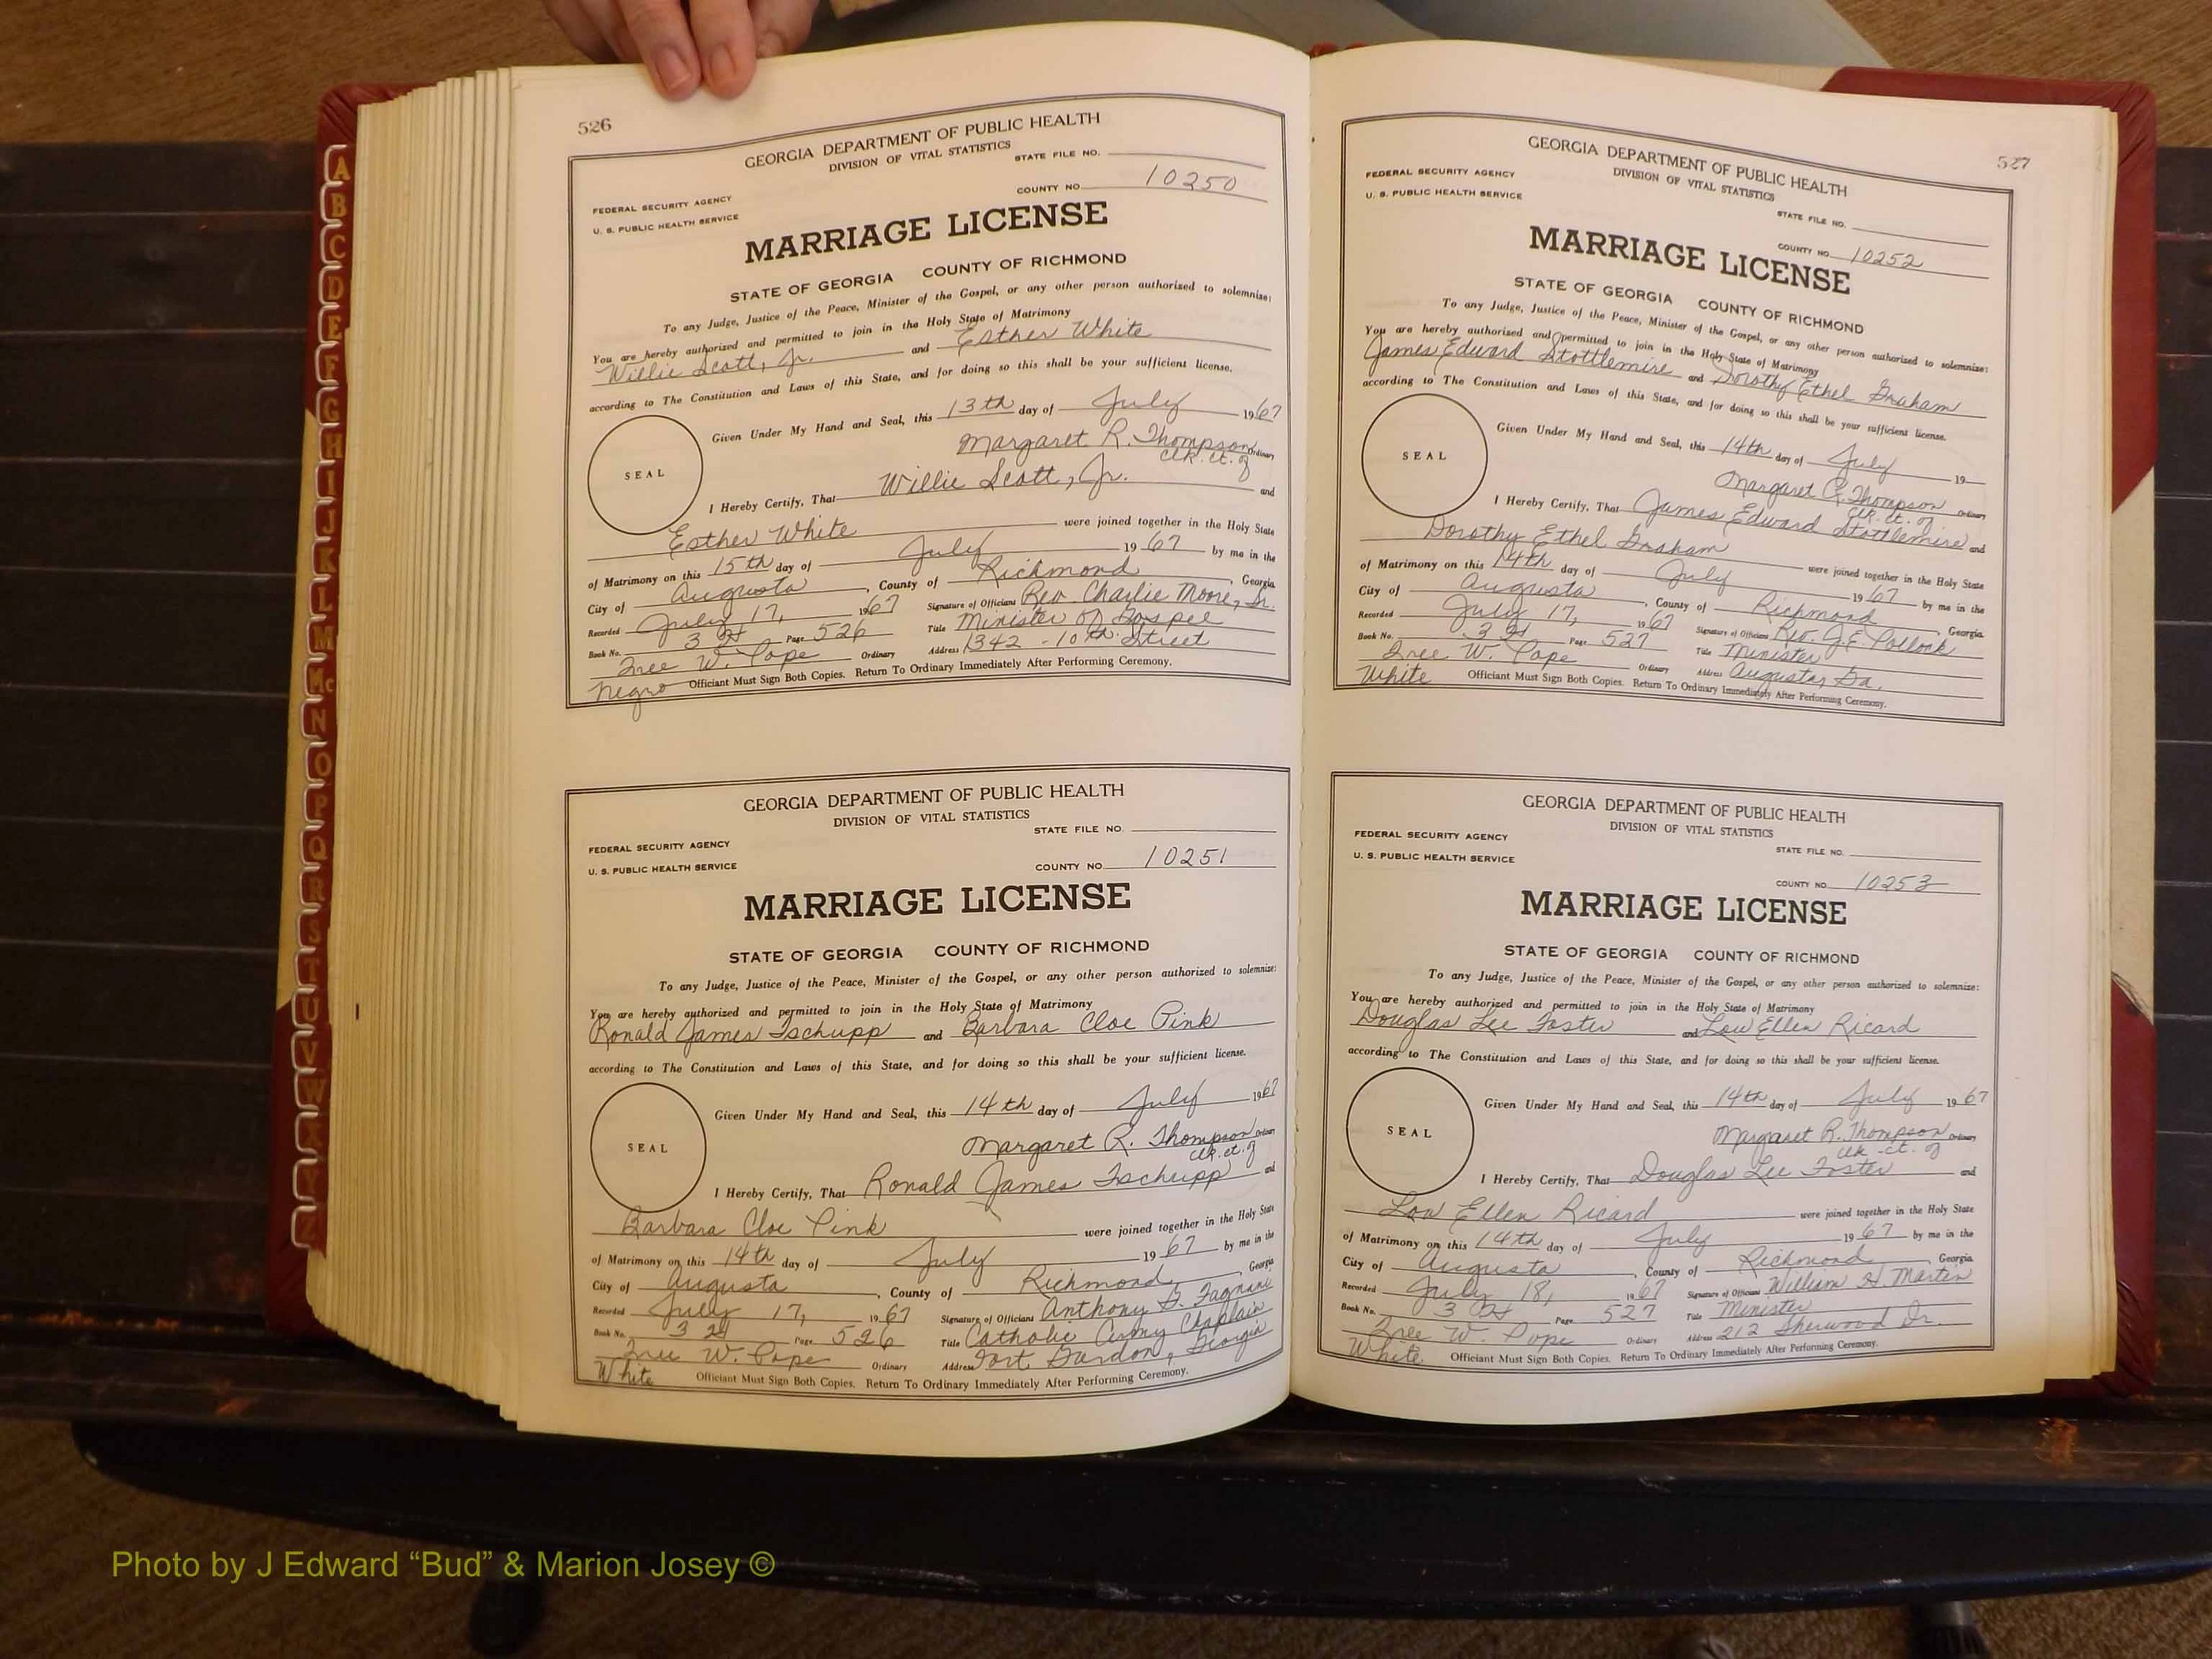 526
GEORGIA DEPARTMENT OF PUBLIC HEALTH
DIVISION OF VITAL STATISTICS
STATE FILE NO.
FEDERAL SECURITY AGENCY
COUNTY NO. 10250
U. S. PUBLIC HEALTH SERVICE
MARRIAGE LICENSE
STATE OF GEORGIA COUNTY OF RICHMOND
To any Judge, Justice of the Peace, Minister of the Gospel, or any other person authorized to solemnize:
You are hereby authorized and permitted to join in the Holy State of Matrimony
Willie Scott, Jr. and Esther White
according to The Constitution and Laws of this State, and for doing so this shall be your sufficient license.
Given Under My Hand and Seal, this 13th day of July 1967
SEAL
Margaret R. Thompson Ordinary
Clk. Ct. of
I Hereby Certify, That Willie Scott, Jr. and
Esther White were joined together in the Holy State
of Matrimony on this 15th day of July 1967 by me in the
City of Augusta, County of Richmond, Georgia
Recorded July 17, 1967 Signature of Officiant Rev Charlie Moore, Sr.
Book No. 3 Page 526 Title Minister of Gospel
Tree W. Pope Ordinary Address 1342 - 10th Street
Negro Officiant Must Sign Both Copies. Return To Ordinary Immediately After Performing Ceremony.
GEORGIA DEPARTMENT OF PUBLIC HEALTH
DIVISION OF VITAL STATISTICS
STATE FILE NO.
FEDERAL SECURITY AGENCY
U. S. PUBLIC HEALTH SERVICE
COUNTY NO. 10251
MARRIAGE LICENSE
STATE OF GEORGIA COUNTY OF RICHMOND
To any Judge, Justice of the Peace, Minister of the Gospel, or any other person authorized to solemnize:
You are hereby authorized and permitted to join in the Holy State of Matrimony
Ronald James Tschupp and Barbara Cloe Pink
according to The Constitution and Laws of this State, and for doing so this shall be your sufficient license.
Given Under My Hand and Seal, this 14th day of July 1967
SEAL
Margaret R. Thompson Ordinary
Clk. ct. of
I Hereby Certify, That Ronald James Tschupp and
Barbara Cloe Pink were joined together in the Holy State
of Matrimony on this 14th day of July 1967 by me in the
City of Augusta, County of Richmond, Georgia
Recorded July 17, 1967 Signature of Officiant Anthony
Book No. 3 Page 526 Title Catholic Army Chaplain
Tree W. Pope Ordinary Address Fort Gordon, Georgia
White Officiant Must Sign Both Copies. Return To Ordinary Immediately After Performing Ceremony.
527
GEORGIA DEPARTMENT OF PUBLIC HEALTH
DIVISION OF VITAL STATISTICS
FEDERAL SECURITY AGENCY
U. S. PUBLIC HEALTH SERVICE
STATE FILE NO.
COUNTY NO. 10252
MARRIAGE LICENSE
STATE OF GEORGIA COUNTY OF RICHMOND
To any Judge, Justice of the Peace, Minister of the Gospel, or any other person authorized to solemnize:
You are hereby authorized and permitted to join in the Holy State of Matrimony
James Edward Stottlemire and Dorothy Ethel Graham
according to The Constitution and Laws of this State, and for doing so this shall be your sufficient license.
Given Under My Hand and Seal, this 14th day of July 19
SEAL
Margaret R. Thompson Ordinary
Clk. Ct. of
I Hereby Certify, That James Edward Stottlemire and
Dorothy Ethel Graham were joined together in the Holy State
of Matrimony on this 14th day of July 1967 by me in the
City of Augusta, County of Richmond, Georgia
Recorded July 17, 1967 Signature of Officiant Rev. J.E. Pollock
Book No. 3 Page 527 Title Minister
Tree W. Pope Ordinary Address Augusta, Ga.
White Officiant Must Sign Both Copies. Return To Ordinary Immediately After Performing Ceremony.
GEORGIA DEPARTMENT OF PUBLIC HEALTH
DIVISION OF VITAL STATISTICS
FEDERAL SECURITY AGENCY
STATE FILE NO.
U. S. PUBLIC HEALTH SERVICE
COUNTY NO. 10253
MARRIAGE LICENSE
STATE OF GEORGIA COUNTY OF RICHMOND
To any Judge, Justice of the Peace, Minister of the Gospel, or any other person authorized to solemnize:
You are hereby authorized and permitted to join in the Holy State of Matrimony
Douglas Lee Foster and Lou Ellen Ricard
according to The Constitution and Laws of this State, and for doing so this shall be your sufficient license.
Given Under My Hand and Seal, this 14th day of July 1967
SEAL
Margaret R. Thompson Ordinary
Clk. ct. of
I Hereby Certify, That Douglas Lee Foster and
Lou Ellen Ricard were joined together in the Holy State
of Matrimony on this 14th day of July 1967 by me in the
City of Augusta, County of Richmond, Georgia
Recorded July 18, 1967 Signature of Officiant William H Martin
Book No. 3 Page 527 Title Minister
Tree W. Pope Ordinary Address 212 Sherwood Dr.
White. Officiant Must Sign Both Copies. Return To Ordinary Immediately After Performing Ceremony.
A
B
C
D
E
F
G
H
I
J
K
L
M
Mc
N
O
P
Q
R
S
T
U
V
W
X
Y
Z
Photo by J Edward “Bud” & Marion Josey ©